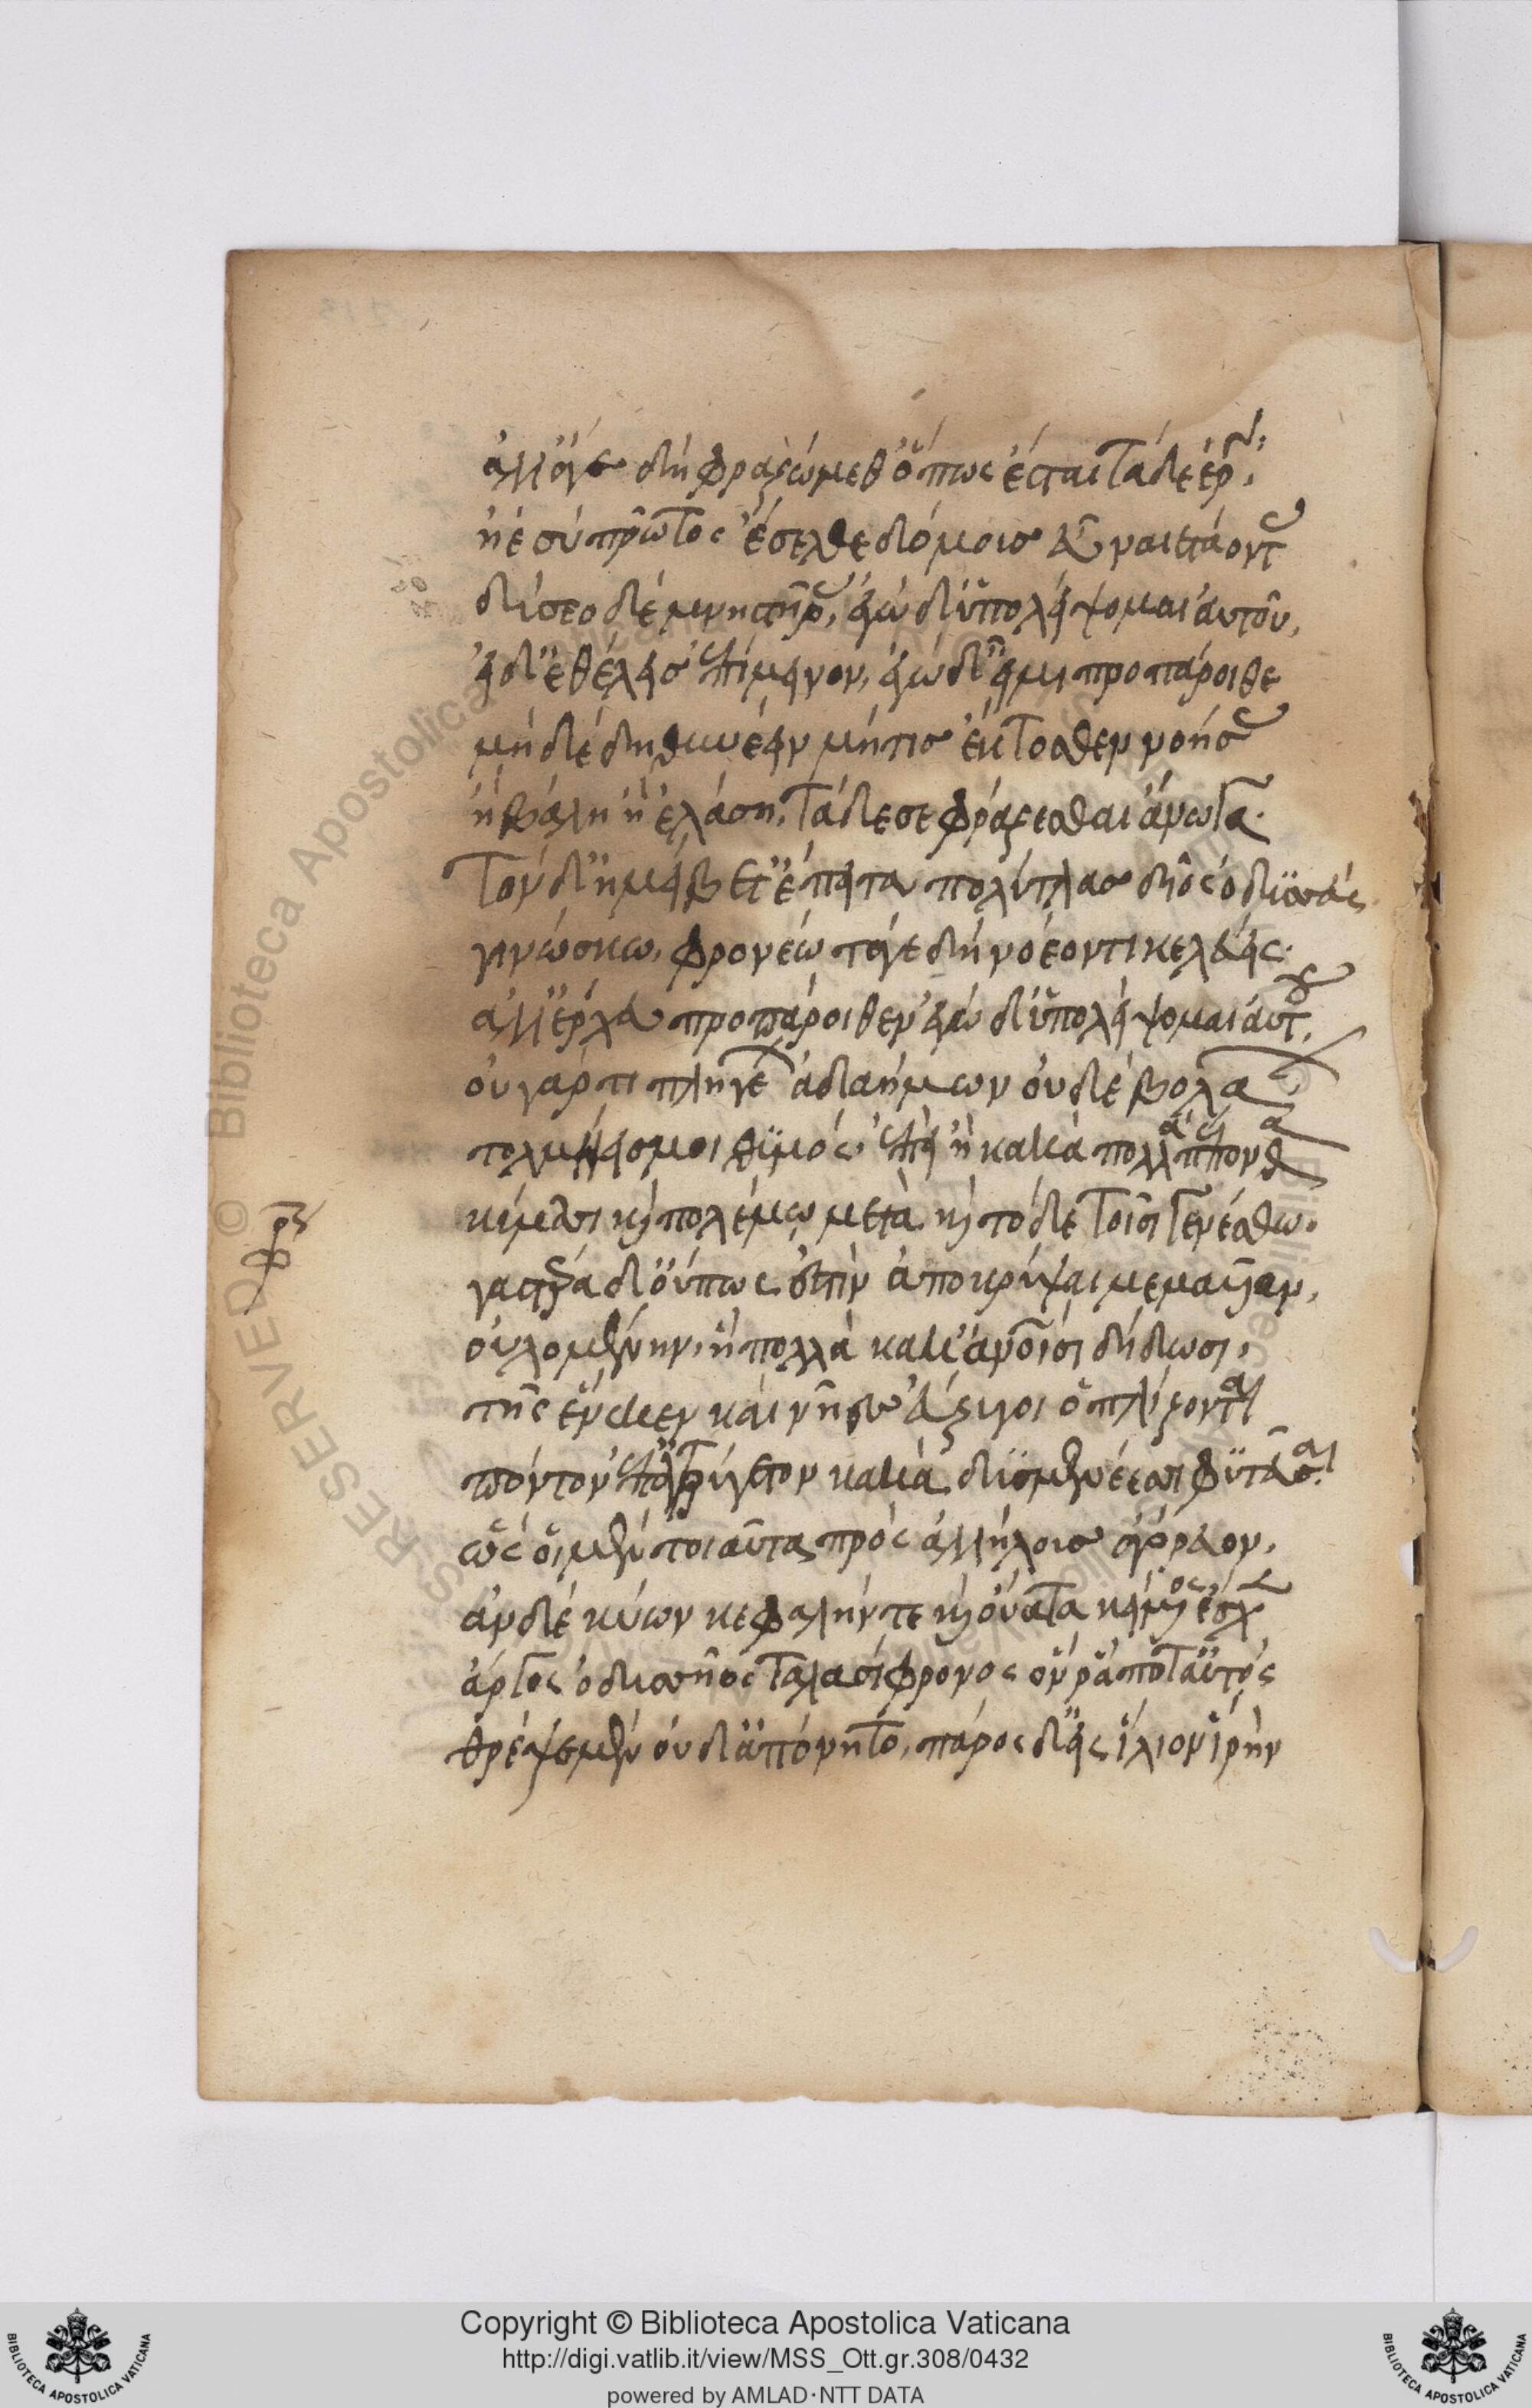 ἀλλ' ἄγε δὴ φραζώμεθ' ὅπως ἔσται τάδε ἔργα·
ἠὲ σὺ πρῶτος ἔσελθε δόμους εὖ ναιετάοντας
δύσεο δὲ μνηστῆρας, ἐγὼ δ' ὑπολείψομαι αὐτοῦ,
εἰ δ' ἐθέλεις ἐπίμεινον, ἐγὼ δ' εἶμι προπάροιθε
μὴ δὲ δηθύνειν μήτις ἔκτοσθεν νοήσας
ἢ βάλῃ ἢ ἐλάσῃ, τάδε σε φράζεσθαι ἄνωγα.
τὸν δ' ἠμείβετ' ἔπειτα πολύτλας δῖος ὀδυσσεύς
γινώσκω, φρονέω τάγε δὴ νοέοντι κελεύεις.
ἀλλ' ἔρχευ προπάροιθεν ἐγὼ δ' ὑπολείψομαι αὐτοῦ,
οὐ γάρ τι πληγέων ἀδαήμων οὐδὲ βολάων
τολμήεις μοι θυμός, ἐπεὶ ἢ κακὰ πολλὰ πέπονθα
κύμασι καὶ πολέμῳ μετὰ καὶ τόδε τοῖσι γενέσθω.
γαστέρα δ' οὔπως ἐστὶν ἀποκρύψαι μεμαυῖαν,
οὐλομένην, ἣ πολλὰ κάκ' ἀνθρώποισι δίδωσι,
τῆς ἕνεκεν καὶ νῆες ἐΰζυγοι ὁπλίζονται
πόντον ἐπ' ἀτρύγετον κακὰ δυσμενέεσσι φέρουσαι.
ὣς οἱ μὲν τοιαῦτα πρὸς ἀλλήλους ἀγόρευον,
ἂν δὲ κύων κεφαλήν τε καὶ οὔατα κείμενος ἔσχεν
ἄργος ὀδυσσῆος ταλασίφρονος ὅν ῥά ποτ' αὐτός
θρέψε μὲν οὐδ' ἀπόνητο, πάρος δ' εἰς ἴλιον ἱρήν
Copyright © Biblioteca Apostolica Vaticana
http://digi.vatlib.it/view/MSS_Ott.gr.308/0432
powered by AMLAD·NTT DATA